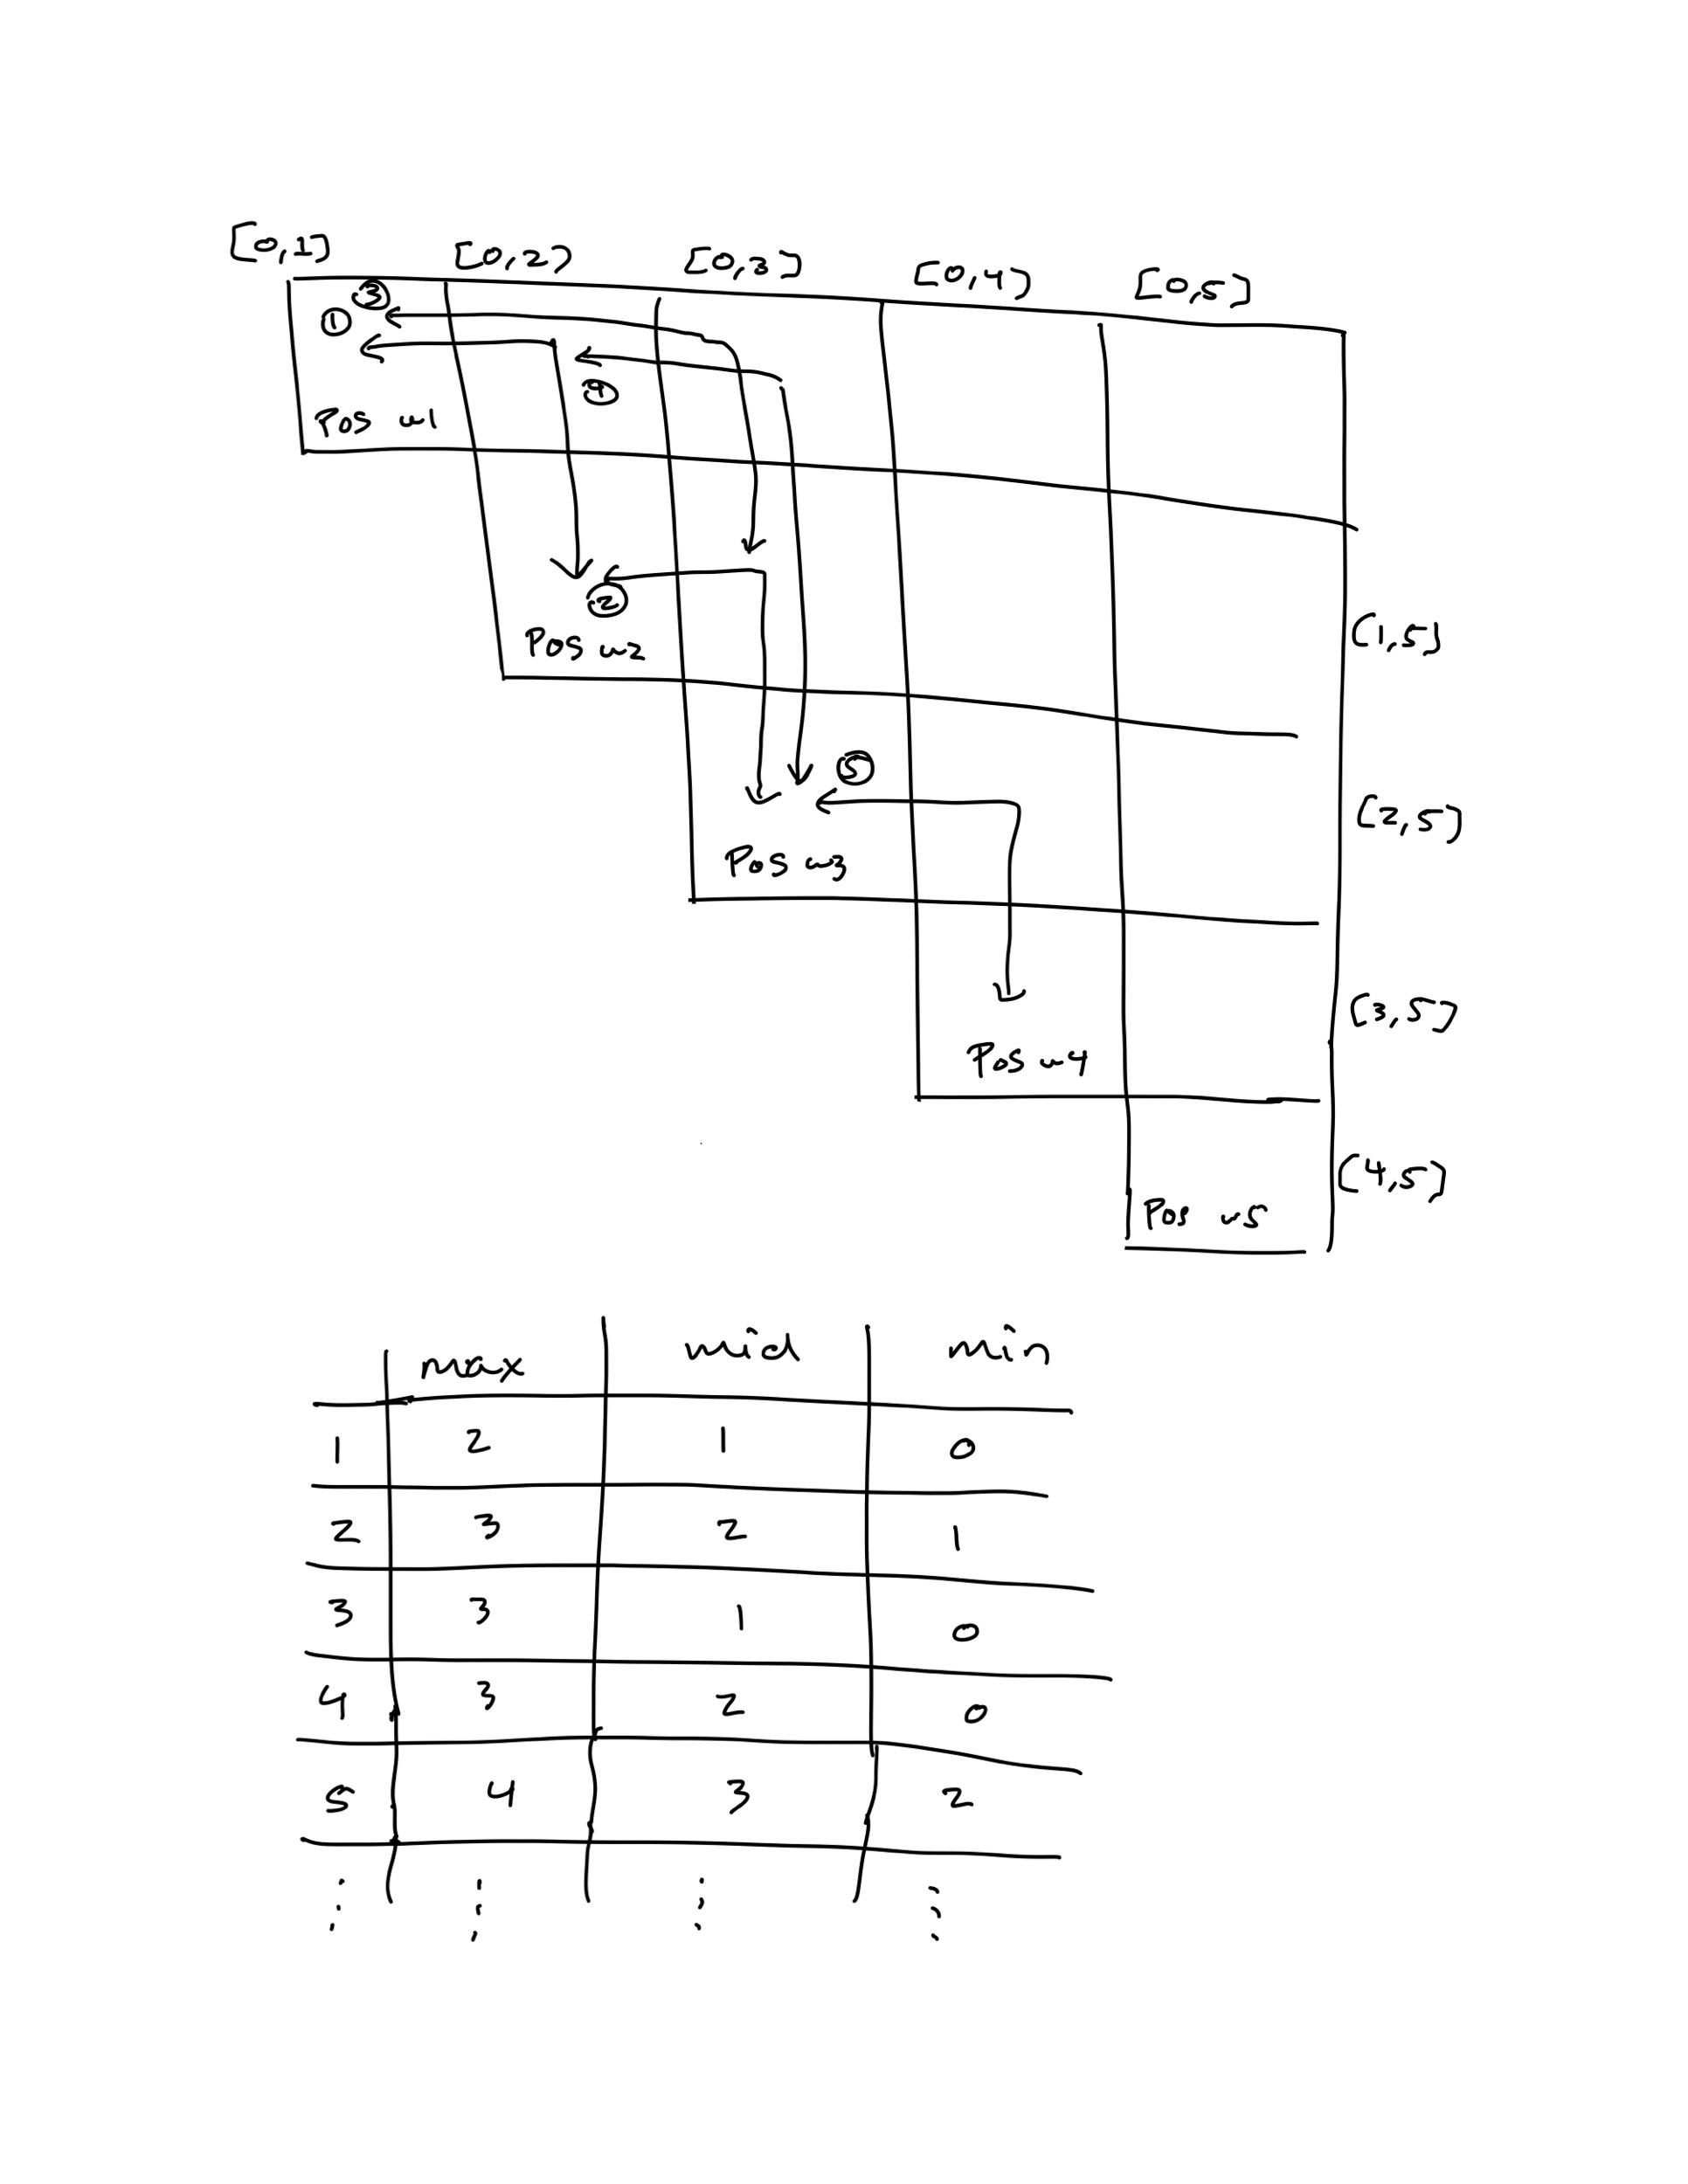 [0,1] [0,2] [0,3] [0,4] [0,5]
① ③
④
Pos w1
②
Pos w2
(1,5)
⑤
Pos w3
(2,5)
Pos w4
(3,5)
Pos w5
(4,5)
max mid min
1 2 1 0
2 3 2 1
3 3 1 0
4 3 2 0
5 4 3 2
⋮ ⋮ ⋮ ⋮